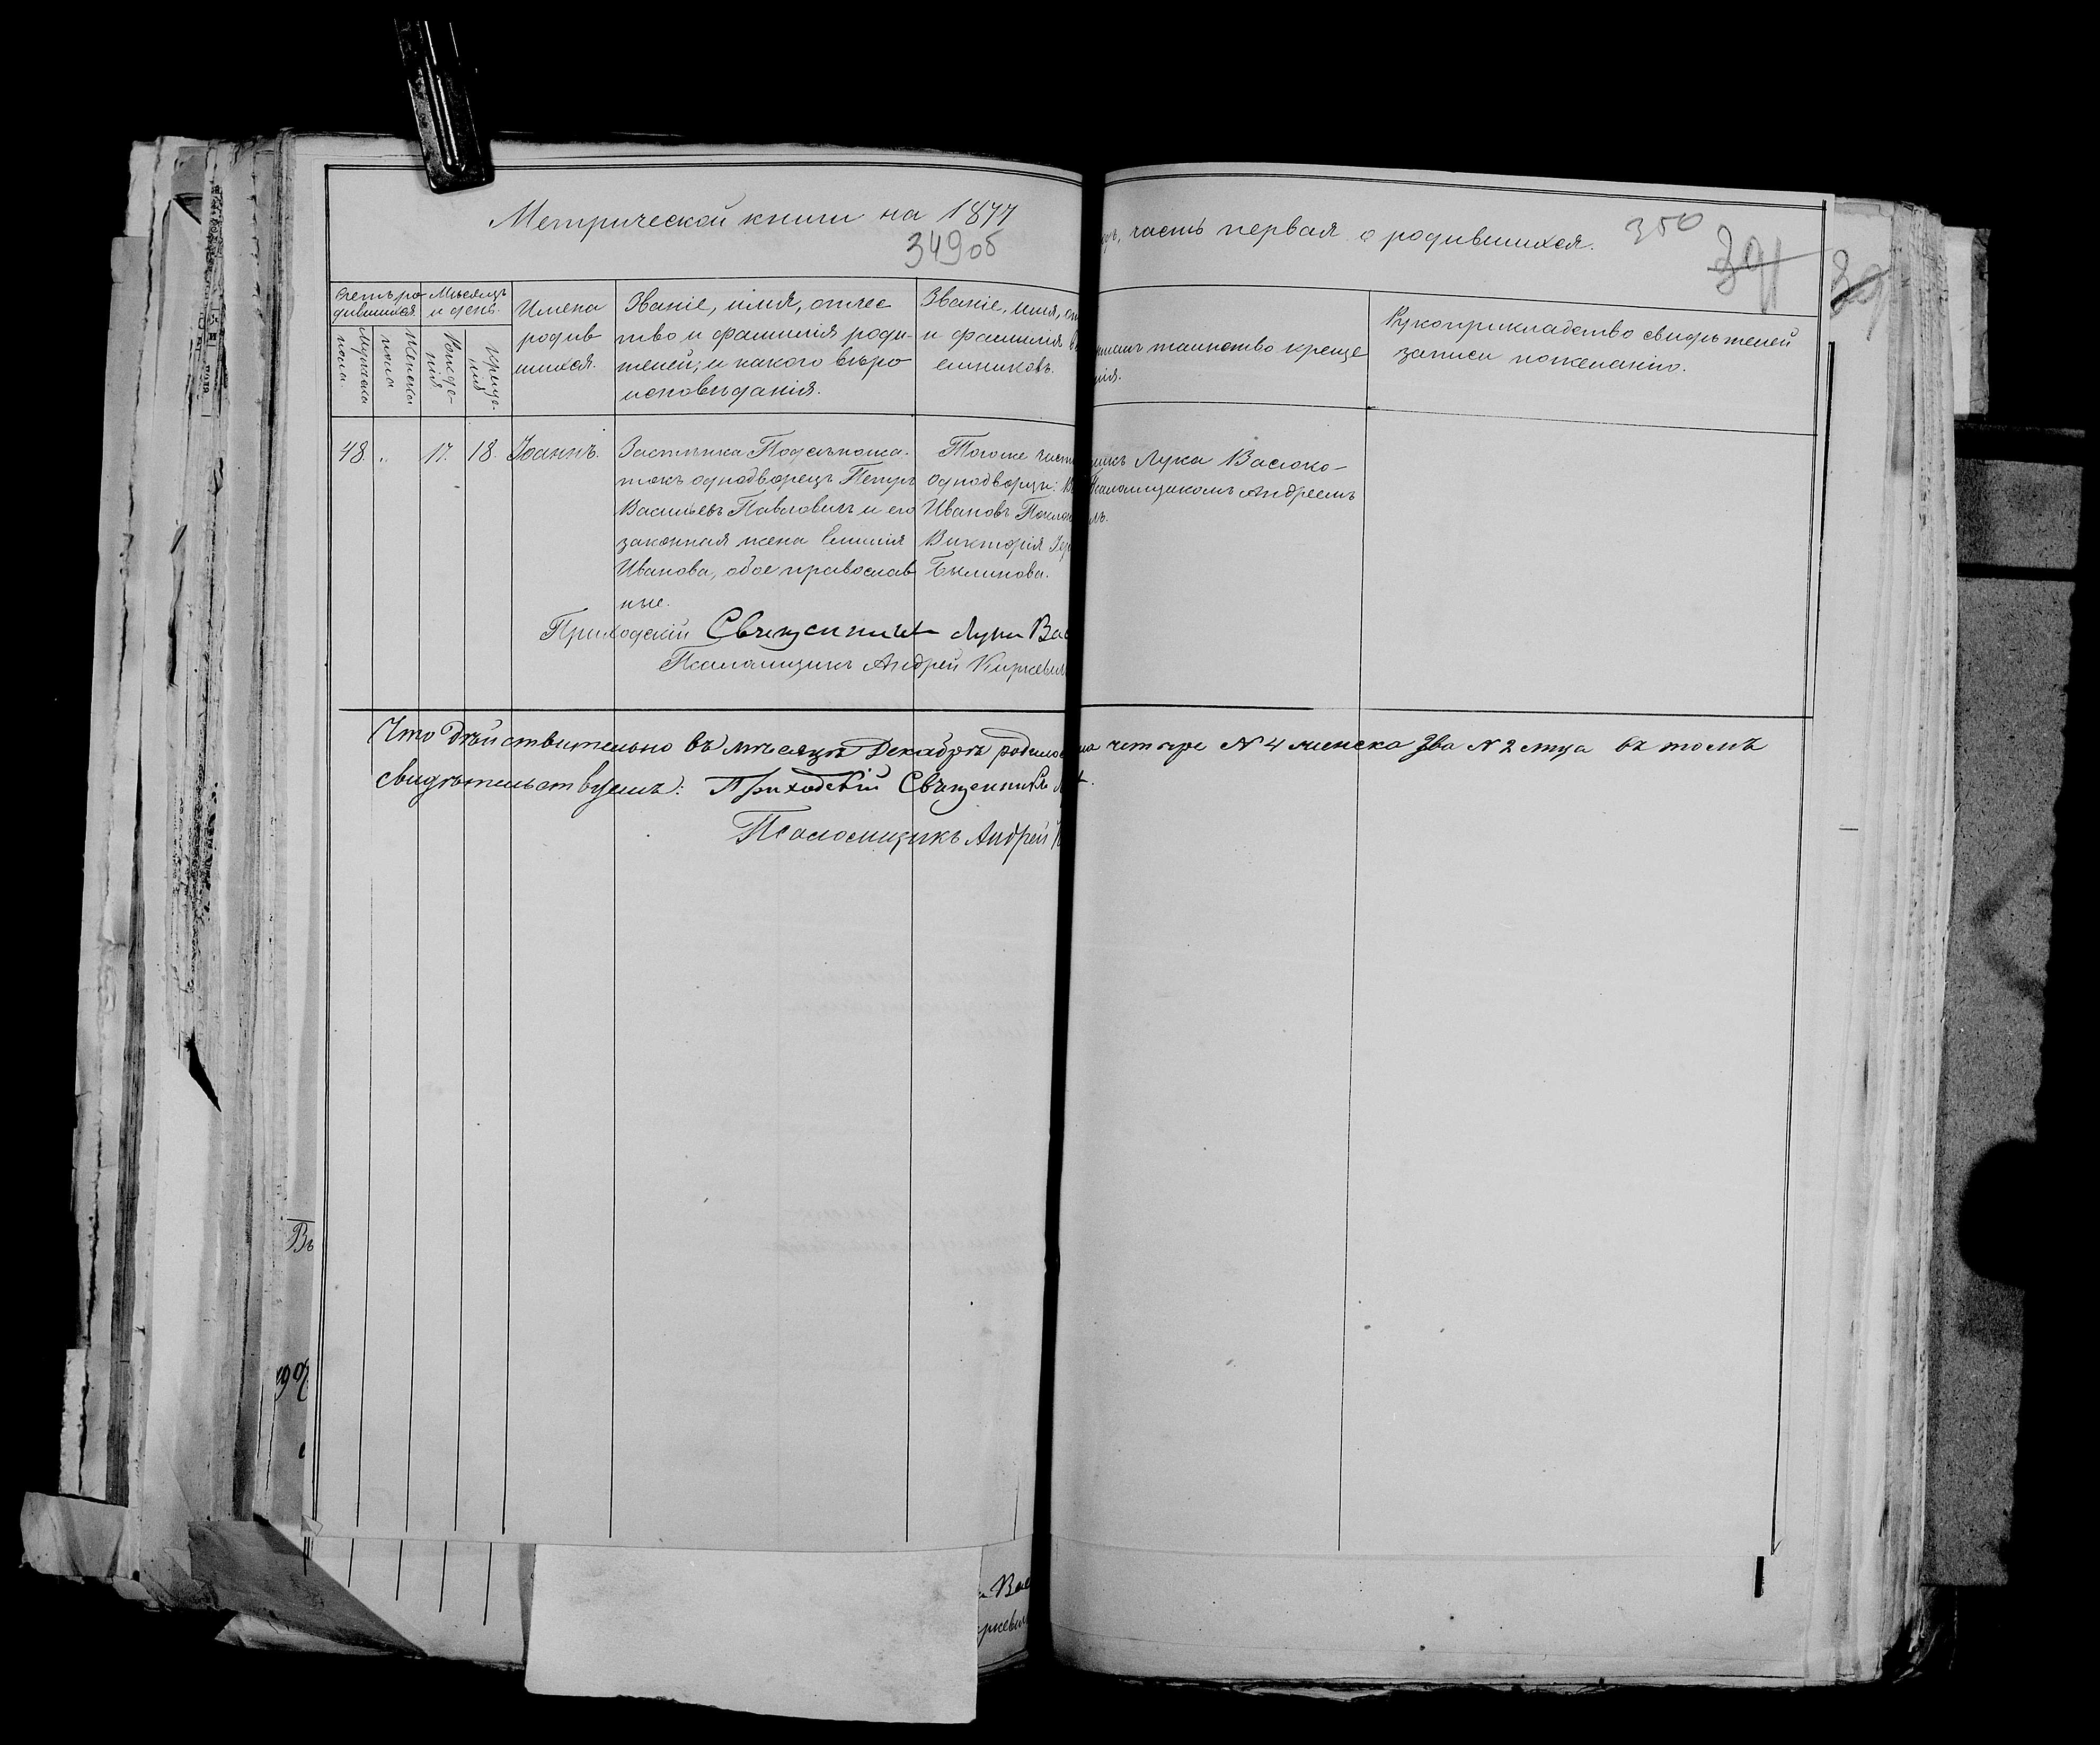 Метрической книги на 1877
349об
часть первая о родившихся.
350
391
Счетъ ро
дившихся
Мѣсяцъ
и день.
Мужеска
пола.
Женска
пола
Рожде-
нія
Креще-
нія
Имена
родив
шихся.
Званіе, имя, отчес
тво и фамилія роди-
телей, и какого вѣро
исповѣданія.
Званіе, имя,
и фамилія
емниковъ.
таинство креще
нія.
Рукоприкладство свидѣтелей
записи пожеланію.
48. „ 17. 18. Іоаннъ.
Застѣнка
однодворецъ Петръ
Васильевъ Павловичъ и его
законная жена Емилія
Иванова, обое православ
ные.
Тогоже
однодворцы:
Ивановъ
Викторія
Былинова.
Лука Васюко-
Псаломщикомъ Андреемъ
Приходскій Священникъ Лука Вас
Псаломщикъ Андрей
Что дѣйствительно въ мѣсяцѣ Декабрѣ родилось
четыре N 4 женска два N 2 въ томъ
свидѣтельствуемъ: Приходскій Священникъ
Псаломщикъ Андрей
Въ
Вас